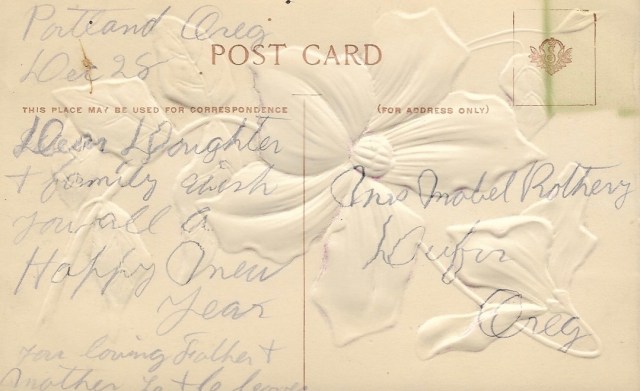 Portland Oreg
Dec 28
POST CARD
THIS PLACE MAY BE USED FOR CORRESPONDENCE
(FOR ADDRESS ONLY)
Dear Doughter
+ family wish
you all a
Happy New
Year
your loving Father +
Mother
Mrs Mabel Rothery
Dufur
Oreg